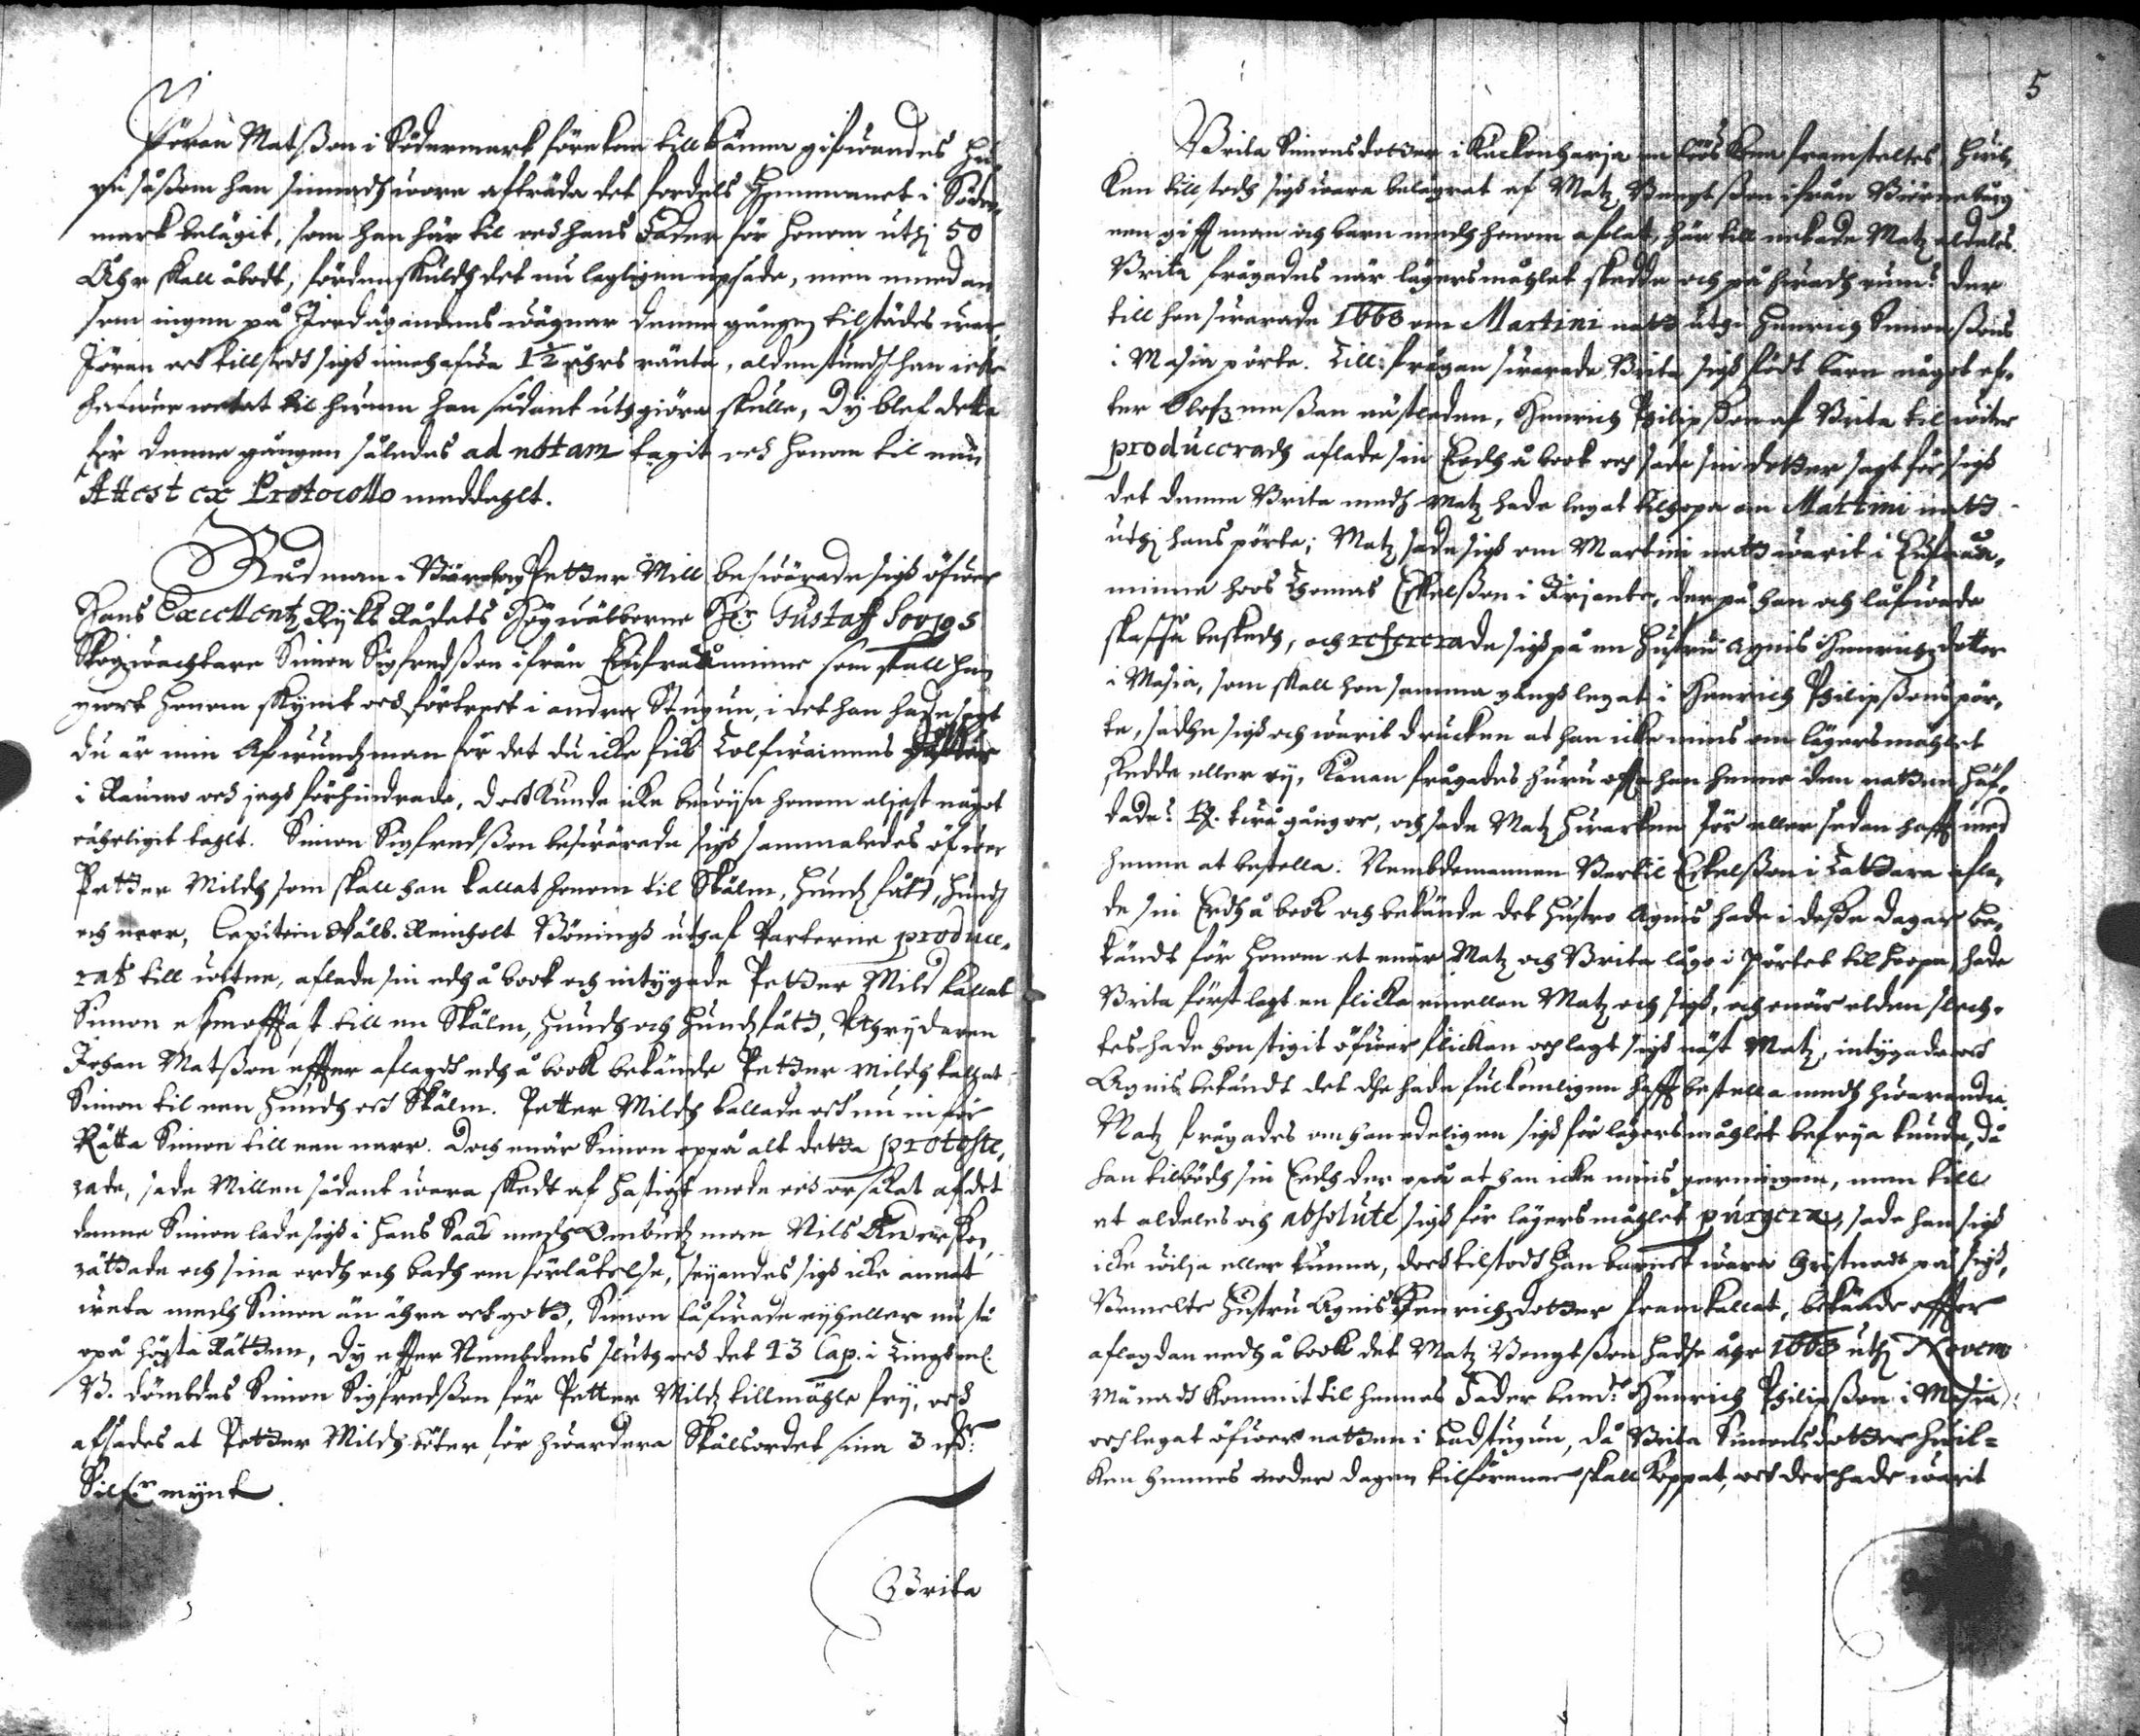 Jöran Matßon i Södermark förekom tillkänna gifwandes hu-
ru såßom han sinnadh woro afträda det fordels Hemmanet i Söder-
mark belägit, som han här til och hans Fader för honom uthi 50
Åhr skall åbodt, fördenskuldh det nu lagligen upsade, men medan
som ingen på Jordägandens wägnar denne gången tilstädes war
Jöran och tillstodh sigh innehafwa 1½ åhrs ränta, aldenstundh han icke
hafwer wetat til hwem han sådant uthgiöra skulle, Dy blef detta
för denne gången således ad nottam tagit och honom til
Attest ex Protocollo meddehlt.
Rådman i Petter Mill beswärade sigh öfwer
Hans Excellentz Rijks Rådets Högwälborne Hr Gustaff
Skogwachtare Simon Sigfredßon ifrån Eufraåminne som skall han
giort honom skymt och förtreet i andra Stugun, i det han hade sagt
du är min Afwundzman för det du icke fick
i Raumo och jagh förhindrade, doch kunde icke bewijsa honom aliest något
oährligit tahlt. Simon Sigfredßon beswärade sigh sammaledes öfwer
Petter Mildh som skall han kallat honom til Skälm, hundz fått, hundh
och narr, Capitein Wälb. Reinholt Bönings uthaf Parterne produce-
rat till witne, aflade sin edh å book och intygade Petter Mild kallat
Simon esomofftast till en Skälm, hundh och hundzfått, Ryttaren
Johan Matßon effter aflagdh edh å book bekände Petter Mildh kallat
Simon til een hundh och Skälm. Petter Mildh kallade och nu inför
Rätta Simon till een narr. Doch enär Simon oppå alt detta proteste-
rade, sade Millen sådant wara skedt af hastigt mode och orsakat af det
denne Simon lade sigh i hans Saak medh Ombudzman Nils
rättade och sina ordh och badh om förlåtelse, seyandes sigh icke annat
weta medh Simon än ähra och gott, Simon låfwade eij heller nu stå
opå högsta Rätten, Dy effter Nembdens sluth och det 13 Cap. i Tingml.
B. dömbdes Simon Sigfredßon för Petter Mildz tillmähle frij, och
afsades at Petter Mildh böter för hwardera Skälsordet sina 3 mk:
Silfr mynt.
Brita
5
Brita Simonsdotter i Kuckonharja en löös Kona framsteltes, hwil-
ken tillstodh sigh wara belägrat af Matz Bengtßon ifrån Biörneborg
een gifft man och barn medh honom aflat, här till nekade Matz aldeles.
Brita frågades när lägersmåhlet skedde och på hwadh rum? der
till hon swarade 1668 om Martini natt uthi Henrich Simonßons
i Masia pörte. Till frågan swarade Brita sigh födt barn något ef-
ter Olofzmeßan nästleden, Henrich Philipßon af Brita til witne
produceradh aflade sin Eedh å book och sade sin dotter sagt för sigh
det denne Brita medh Matz hade legat tilhopa om Martini natt
uthi hans pörte; Matz sade sigh om Martini natt warit i Eufraå-
minne hoos Thomas Eskelßon i Kirjante, der på han och låfwade
skaffa beskedh, och refererade sigh på en hustru Agnis Henrichzdotter
i Masia, som skall hon samma gångh legat i Henrich Philipßons pör-
te, sadhe sigh och warit drucken at han icke mins om lägersmåhlet
skedde eller eij, Konan frågades huru offta han henne den natten häf-
dade? R. twå gångor, och sade Matz hwarken för eller sedan hafft med
henne at bestella. Nembdemannen Bertil Eskelßon i Lattara afla-
de sin Eedh å book och bekände det hustro Agnis hade i deße dagar be-
kändt för honom at enär Matz och Brita lågo i Pörtet til hoopa, hade
Brita först lagt en flicka emellan Matz och sigh, och enär elden slech-
tes hade hon stigit öfwer flickan och lagt sigh näst Matz, intygade och
Agnis bekändt det dhe hade fulkomligen hafft bestella medh hwarandra.
Matz frågades om han edeligen sigh för lägersmåhlet befrija kunde, då
han tilbödh sin Eedh der opå at han icke mins gerningen, men till
at aldeles och absolute sigh för lägersmåhlet purgera, sade han sigh
icke wilja eller kunna, doch tilstodh han barnet wara Christnadt på sigh,
Bemelte hustru Agnis Henrichzdotter framkallat, bekände effter
aflagdan eedh å book det Matz Bengtßon hadhe åhr 1668 uthi Novem
Månadh kommit til hennes Fader bemte Henrich Philipßon i Masia
och legat öfwer natten i badstugun, då Brita Simonsdotter hwil-
ken hennes moder dagen tilförenne skall koppat, och der hade warit